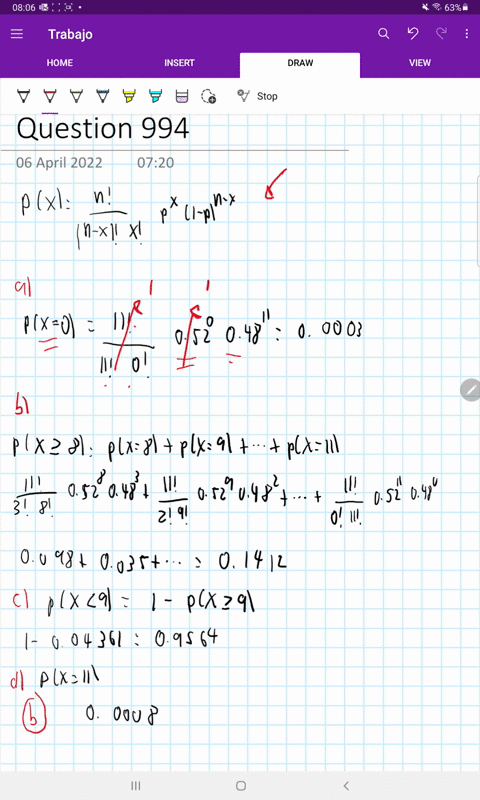 08:06 63%
Trabajo
HOME INSERT DRAW VIEW
Stop
Question 994
06 April 2022 07:20
p(x): n!/((n-x)! x!) p^x (1-p)^(n-x)
a)
p(x=0) = 11!/(11! 0!) 0.52^0 0.48^11 = 0.0003
1 1
b)
p(X ≥ 8): p(x=8) + p(x=9) + ... + p(X=11)
11!/(3! 8!) 0.52^8 0.48^3 + 11!/(2! 9!) 0.52^9 0.48^2 + ... + 11!/(0! 11!) 0.52^11 0.48^0
0.098 + 0.035 + ... = 0.1412
c) p(X<9) = 1 - p(X ≥ 9)
1 - 0.04361 = 0.9564
d) p(X=11)
b 0.0008